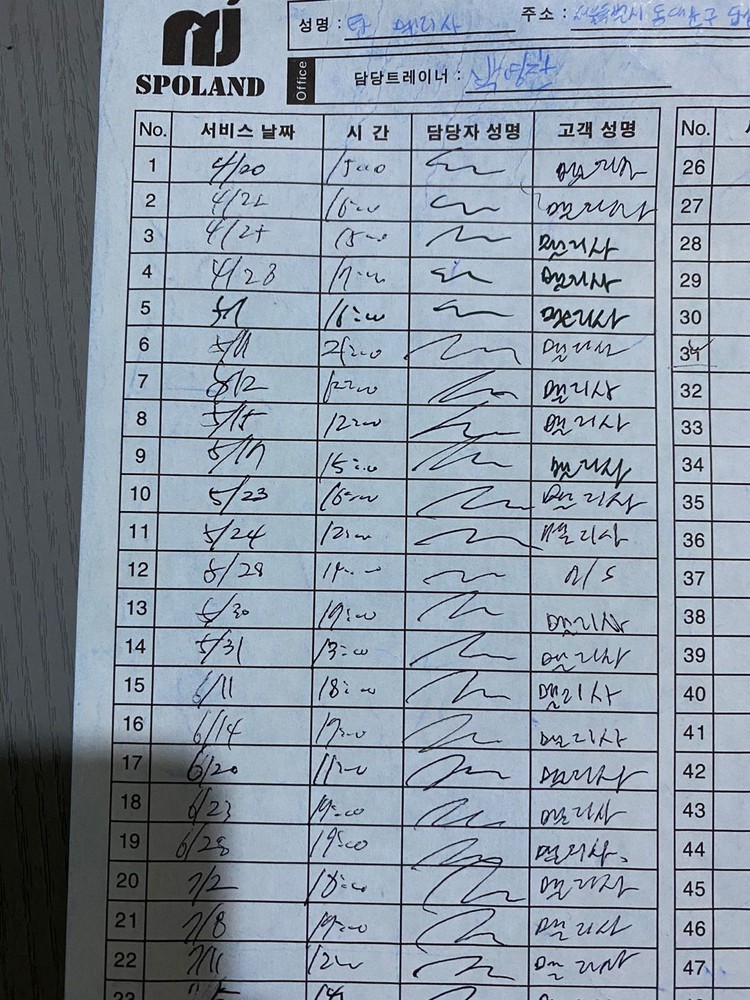 SPOLAND
성명 : 탐 멜리사 주소 : 서울특별시 동대문구
Office 담당트레이너 :
No. 서비스 날짜 시 간 담당자 성명 고객 성명 No.
1 4/20 15:00 멜리사 26
2 16:00 멜리사 27
3 15:00 멜리사 28
4 4/28 17:00 멜리사 29
5 5/1 16:00 멜리사 30
6 5/11 멜리사
7 5/12 12:00 멜리사 32
8 5/15 12:00 멜리사 33
9 5/17 15:00 멜리사 34
10 5/23 16:00 멜리사 35
11 5/24 12:00 멜리사 36
12 5/28 N/S 37
13 5/30 19:00 멜리사 38
14 5/31 13:00 멜리사 39
15 6/11 18:00 멜리사 40
16 6/14 17:00 멜리사 41
17 6/20 11:00 멜리사 42
18 6/23 19:00 멜리사 43
19 6/28 19:00 멜리사. 44
20 7/2 18:00 멜리사 45
21 7/8 19:00 멜리사 46
22 7/11 12:00 멜리사 47
23